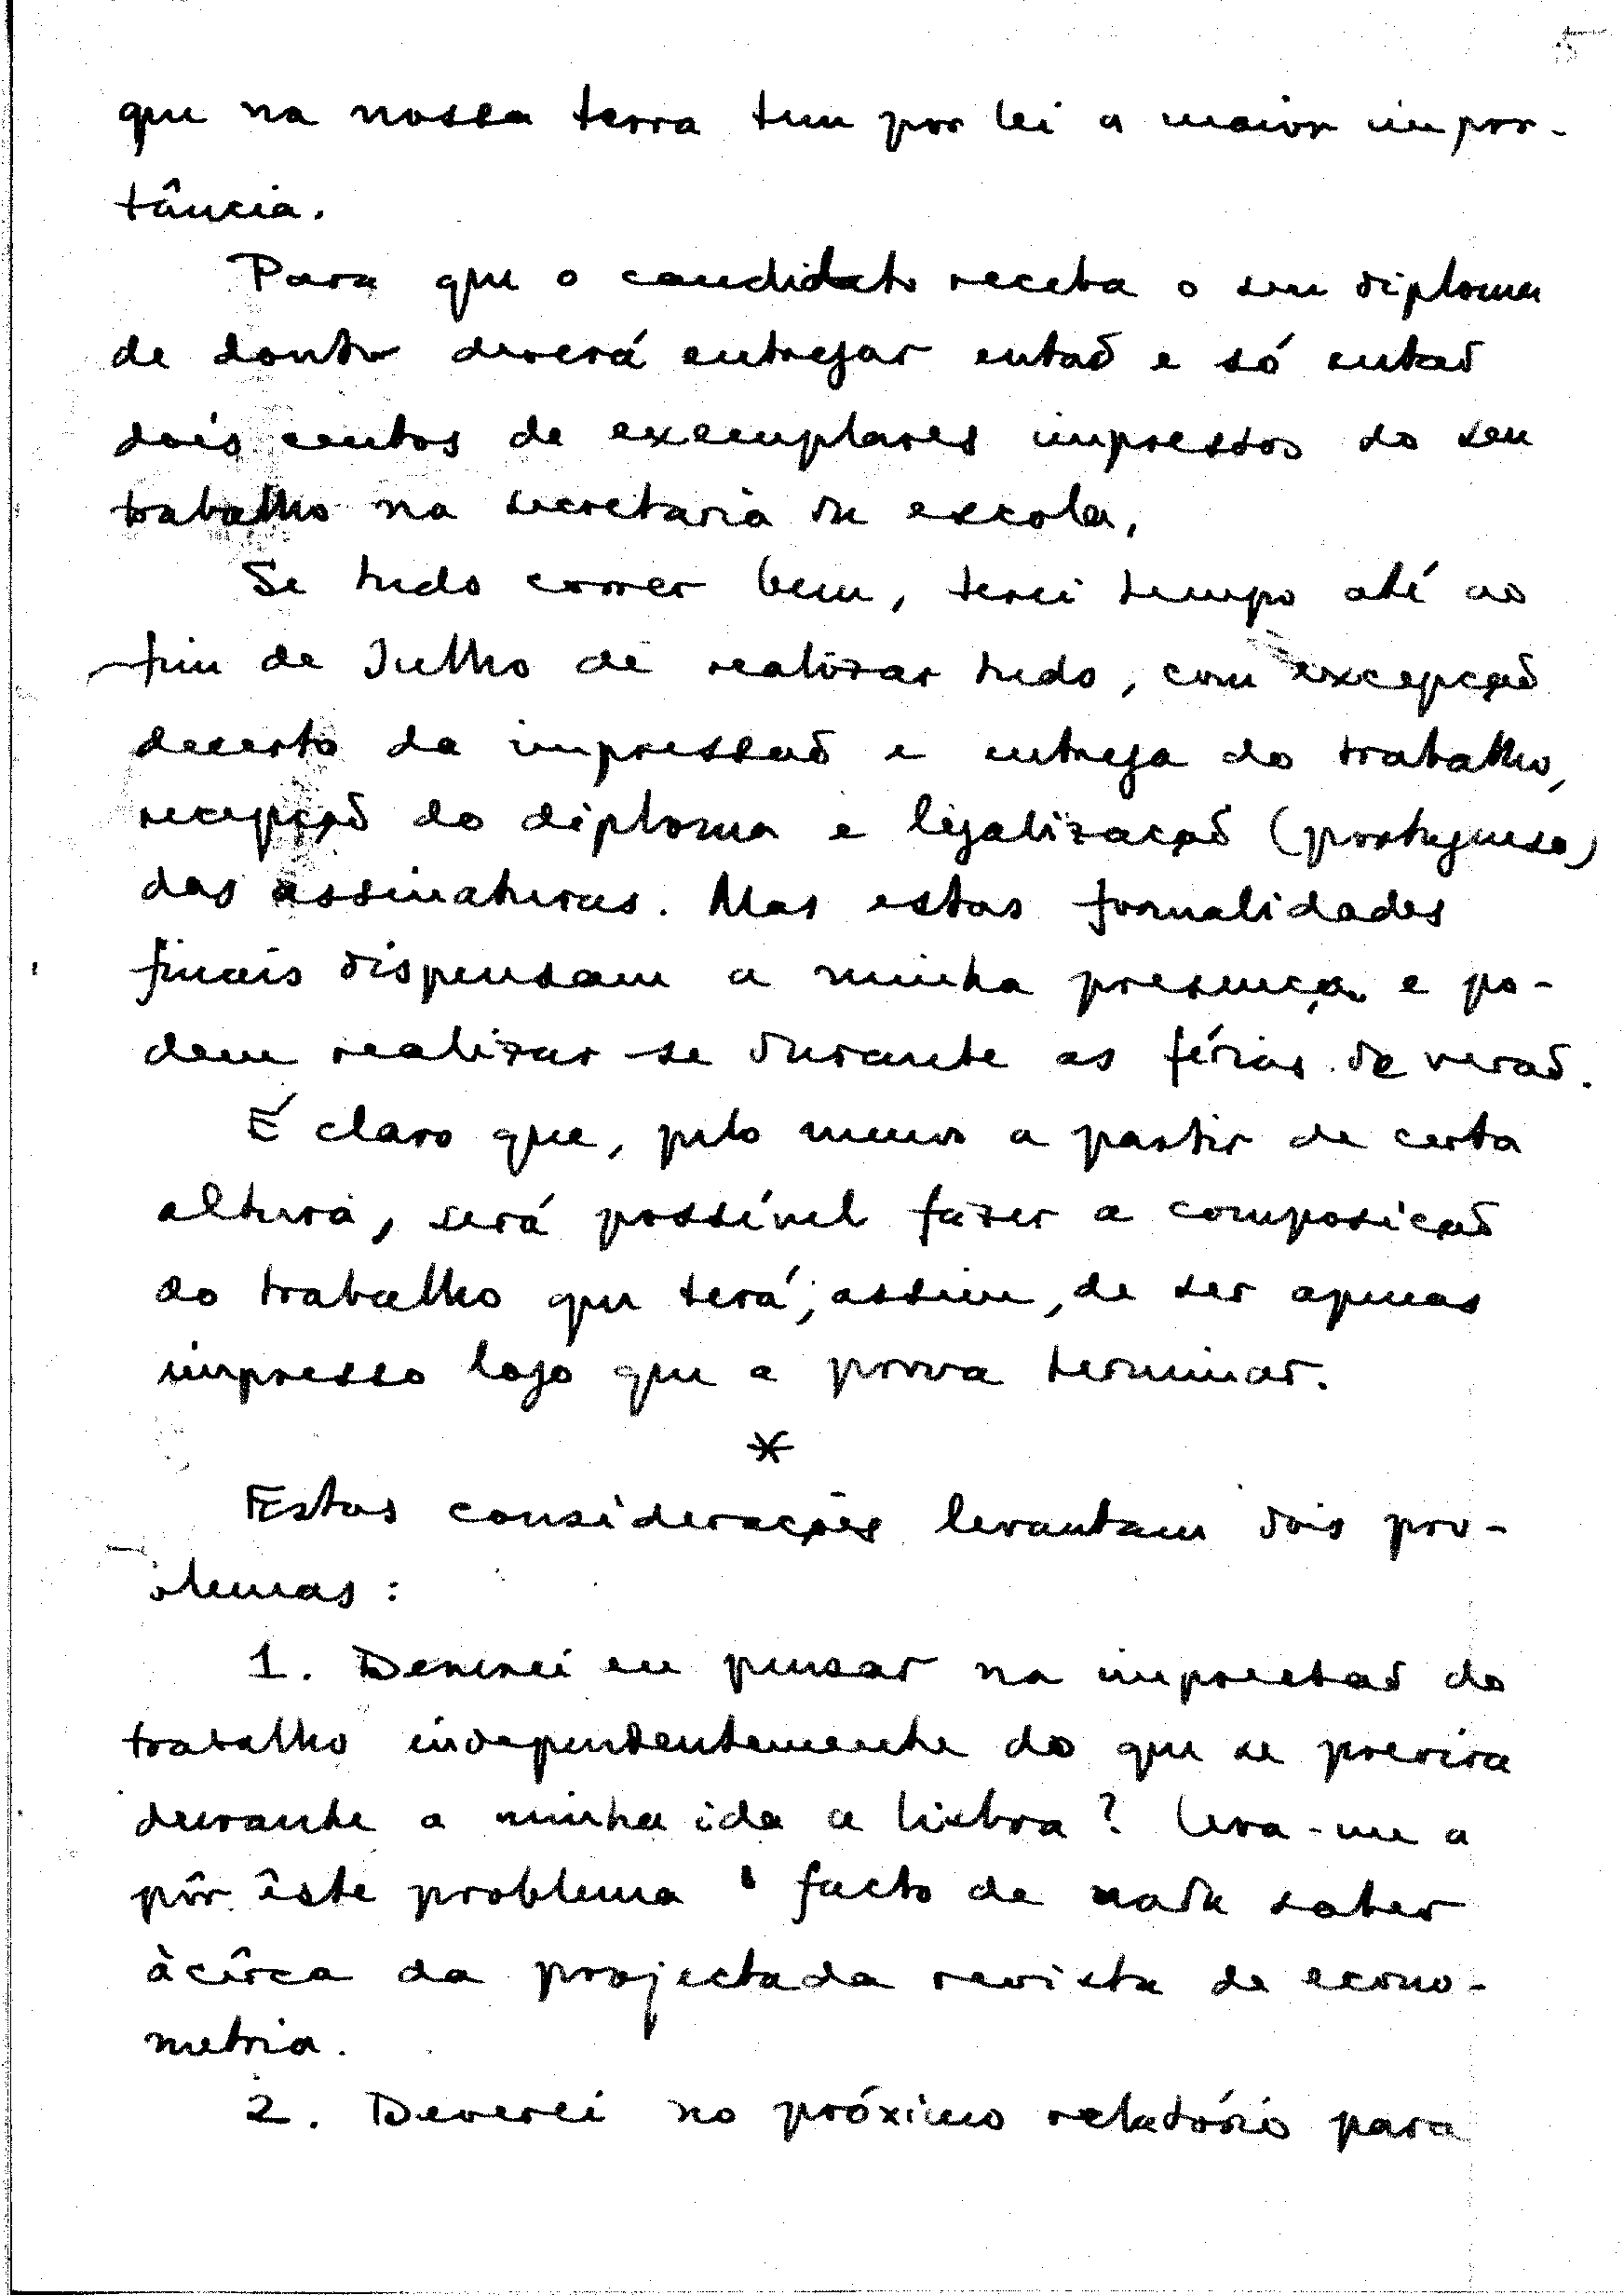 5
que na nossa terra tem por lei a maior impor-
tância.
Para que o candidato receba o seu diploma
de doutor deverá entregar então e só então
dois centos de exemplares impressos do seu
trabalho na secretaria da escola.
Se tudo correr bem, terei tempo até ao
fim de Julho de realizar tudo, com excepção
decerto da impressão e entrega do trabalho,
recepção do diploma e legalização (portuguesa)
das assinaturas. Mas estas formalidades
finais dispensam a minha presença e po-
dem realizar-se durante as férias de verão.
É claro que, pelo menos a partir de certa
altura, será possível fazer a composição
do trabalho que terá, assim, de ser apenas
impresso logo que a prova terminar.
*
Estas considerações levantam dois pro-
blemas:
1. Deverei eu pensar na impressão do
trabalho independentemente do que se previra
durante a minha ida a Lisboa? Leva-me a
pôr êste problema o facto de nada saber
àcêrca da projectada revista de econo-
metria.
2. Deverei no próximo relatório para